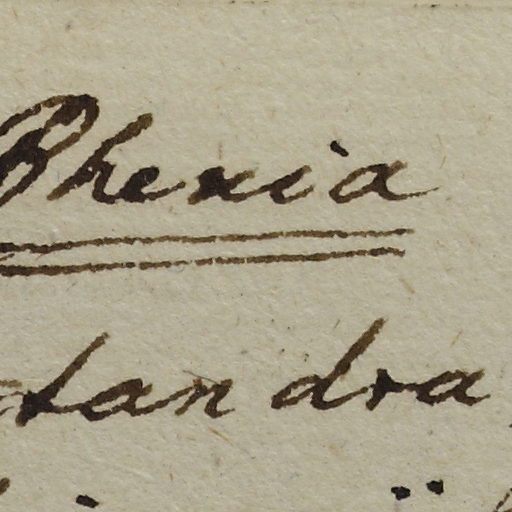 Rhexia
tandra